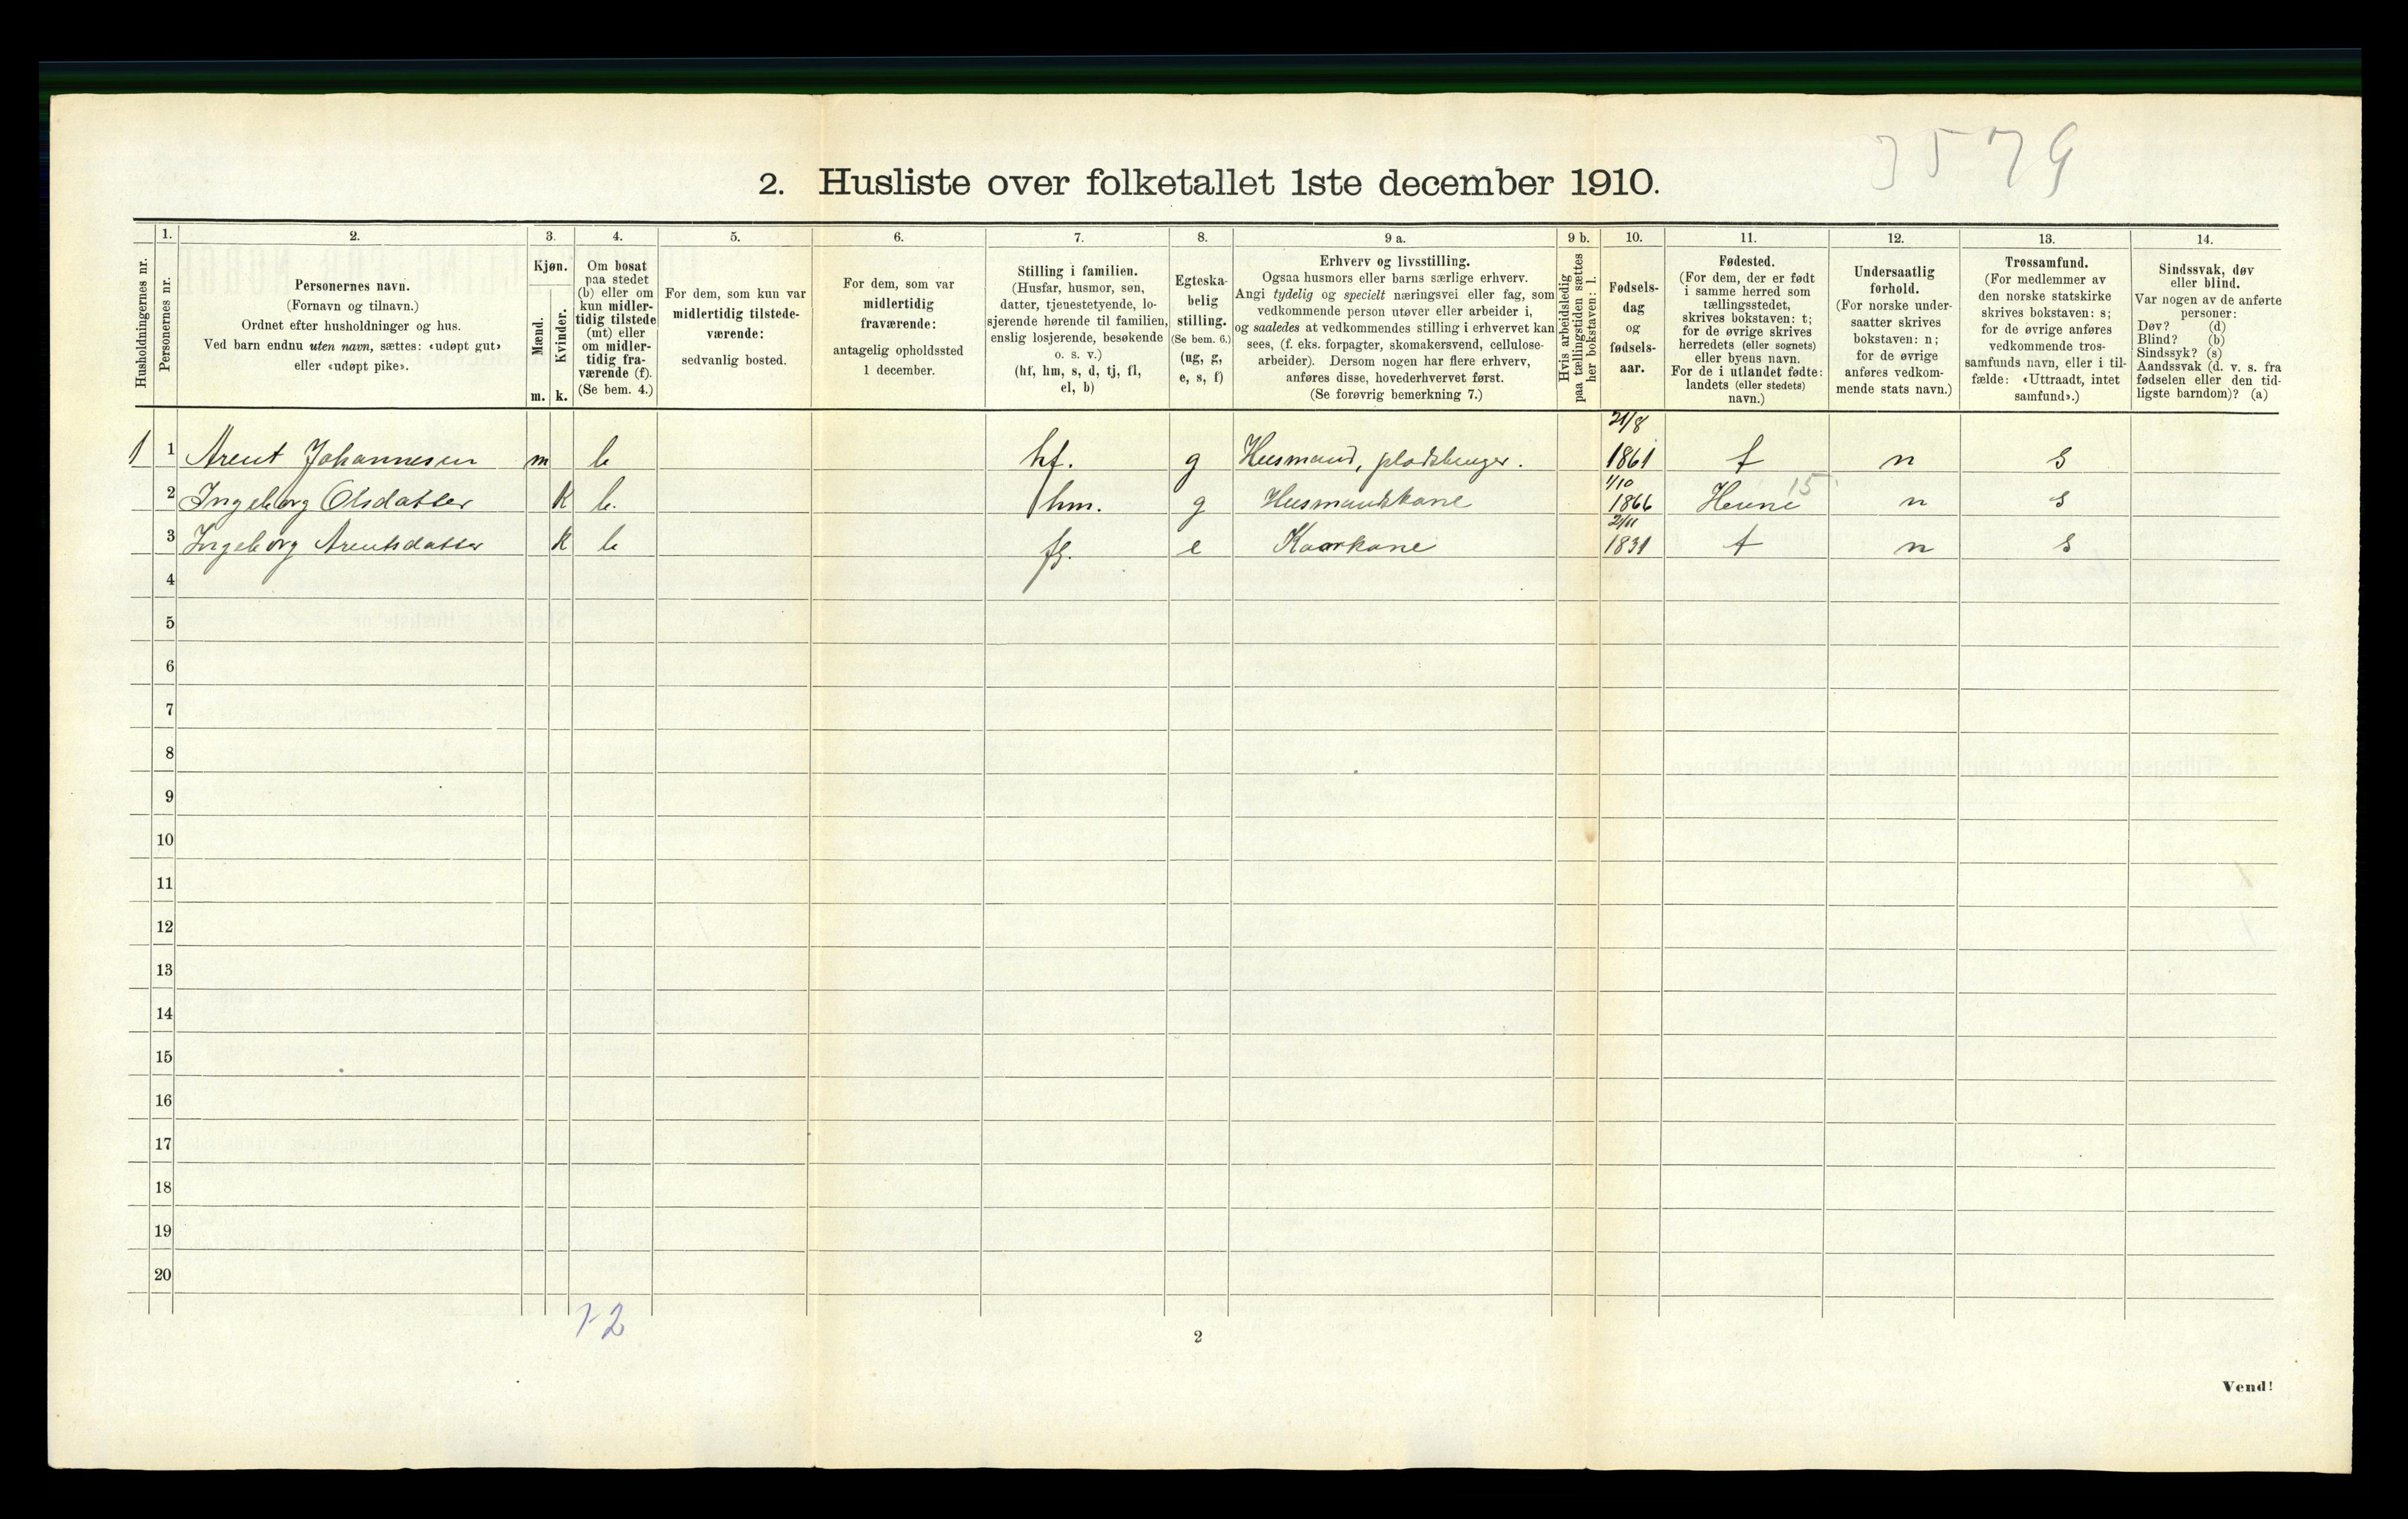 3579
2. Husliste over folketallet 1ste december 1910.
Husholdningernes nr.
1.
Personernes nr.
2.
Personernes navn.
(Fornavn og tilnavn.)
Ordnet efter husholdninger og hus.
Ved barn endnu uten navn, sættes: «udøpt gut»
eller «udøpt pike».
3.
Kjøn.
Mænd.
Kvinder.
m. k.
4.
Om bosat
paa stedet
(b) eller om
kun midler-
tidig tilstede
(mt) eller
om midler-
tidig fra-
værende (f).
(Se bem. 4.)
5.
For dem, som kun var
midlertidig tilstede-
værende:
sedvanlig bosted.
6.
For dem, som var
midlertidig
fraværende:
antagelig opholdssted
1 december.
7.
Stilling i familien.
(Husfar, husmor, søn,
datter, tjenestetyende, lo-
sjerende hørende til familien,
enslig losjerende, besøkende
o. s. v.)
(hf, hm, s, d, tj, fl,
el, b)
8.
Egteska-
belig
stilling.
(Se bem. 6.)
(ug, g,
e, s, f)
9 a.
Erhverv og livsstilling.
Ogsaa husmors eller barns særlige erhverv.
Angi tydelig og specielt næringsvei eller fag, som
vedkommende person utøver eller arbeider i,
og saaledes at vedkommendes stilling i erhvervet kan
sees, (f. eks. forpagter, skomakersvend, cellulose-
arbeider). Dersom nogen har flere erhverv,
anføres disse, hovederhvervet først.
(Se forøvrig bemerkning 7.)
9 b.
Hvis arbeidsledig
paa tællingstiden sættes
her bokstaven: l.
10.
Fødsels-
dag
og
fødsels-
aar.
11.
Fødested.
(For dem, der er født
i samme herred som
tællingsstedet,
skrives bokstaven: t;
for de øvrige skrives
herredets (eller sognets)
eller byens navn.
For de i utlandet fødte:
landets (eller stedets)
navn.)
12.
Undersaatlig
forhold.
(For norske under-
saatter skrives
bokstaven: n;
for de øvrige
anføres vedkom-
mende stats navn.)
13.
Trossamfund.
(For medlemmer av
den norske statskirke
skrives bokstaven: s;
for de øvrige anføres
vedkommende tros-
samfunds navn, eller i til-
fælde: «Uttraadt, intet
samfund».)
14.
Sindssvak, døv
eller blind.
Var nogen av de anførte
personer:
Døv? (d)
Blind? (b)
Sindssyk? (s)
Aandssvak (d. v. s. fra
fødselen eller den tid-
ligste barndom)? (a)
21/8
1 1 Arent Johannesen m b hf. g Husmand, pladsbruger. 1861 t n s
1/10 15
2 Ingeborg Olsdatter k b. hm. g Husmandskone 1866 Hevne n s
2/11
3 Ingeborg Arentsdatter k b e Kaarkone 1831 t n s
4
5
6
7
8
9
10
11
12
13
14
15
16
17
18
19
20
1-2
2
Vend!